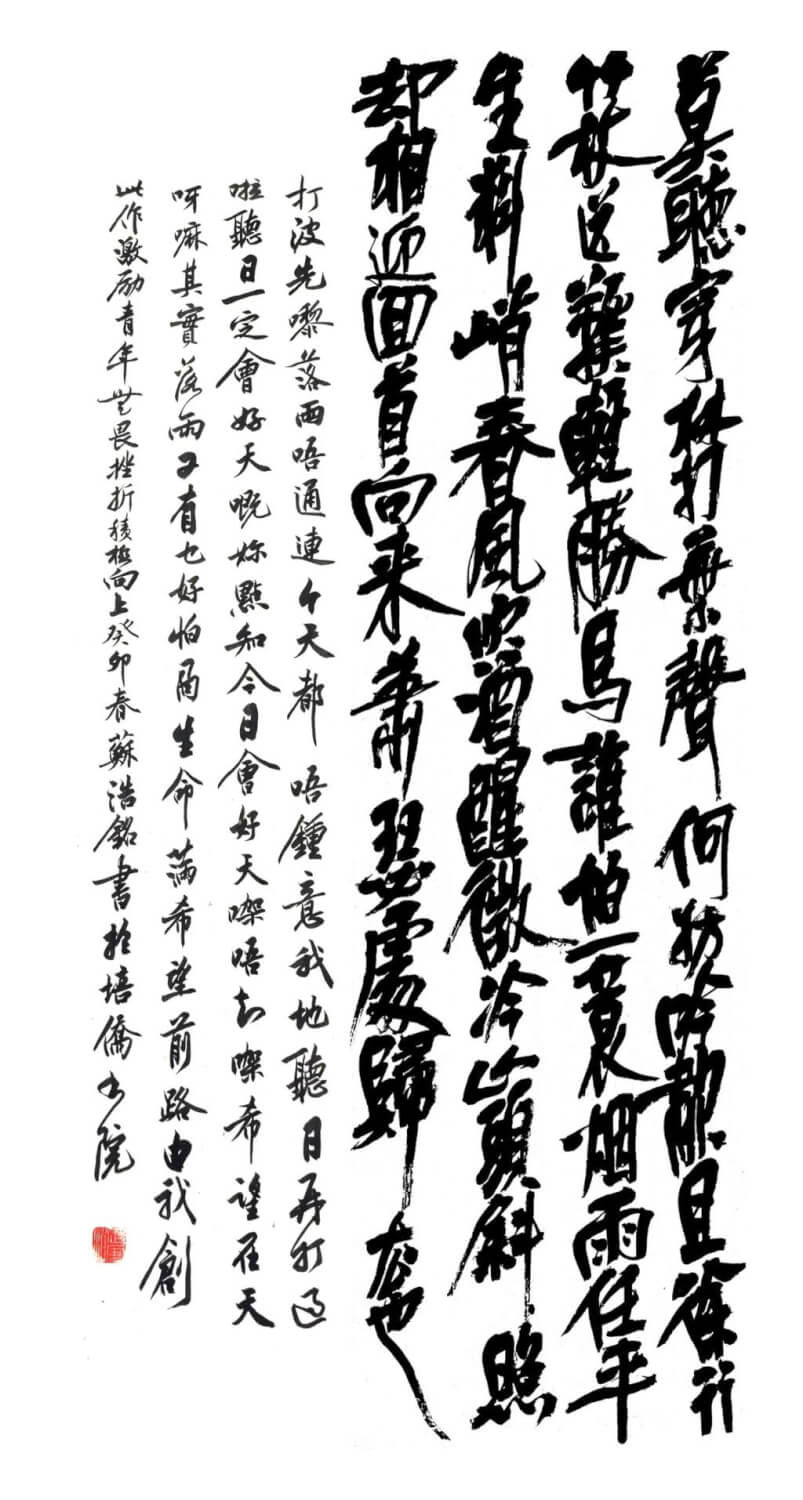 莫聽穿林打葉聲何妨吟嘯且徐行
竹杖芒鞋輕勝馬誰怕一蓑烟雨任平
生料峭春風吹酒醒微冷山頭斜照
却相迎回首向来蕭瑟處歸去也
打波先嚟落雨唔通連个天都唔鍾意我地聽日再打過
啦聽日一定會好天嘅妳點知今日會好天㗎唔知㗎希望在天
呀嘛其實落雨又有乜好怕生命滿希望前路由我創
此作激励青年無畏挫折積極向上癸卯春蘇浩銘書於培僑书院